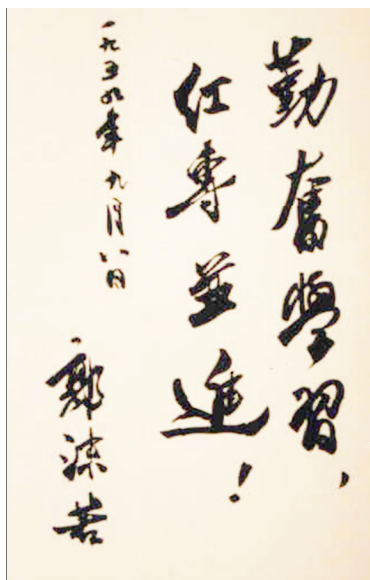 勤奮學習，
红專並進！
一九五九年九月八日
郭沫若